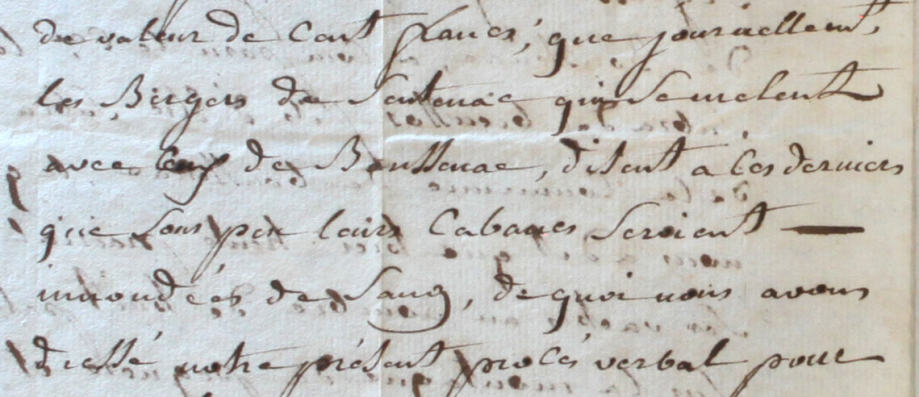 de valeur de Cent francs, que journellemt,
les Bergers de Sentenac qui se melent
avec ceux de Boussenac, disent a Ces derniers
que sous peu leurs Cabanes seroient —
innondées de Sang, de quoi nous avons
dressé notre présent procés verbal pour